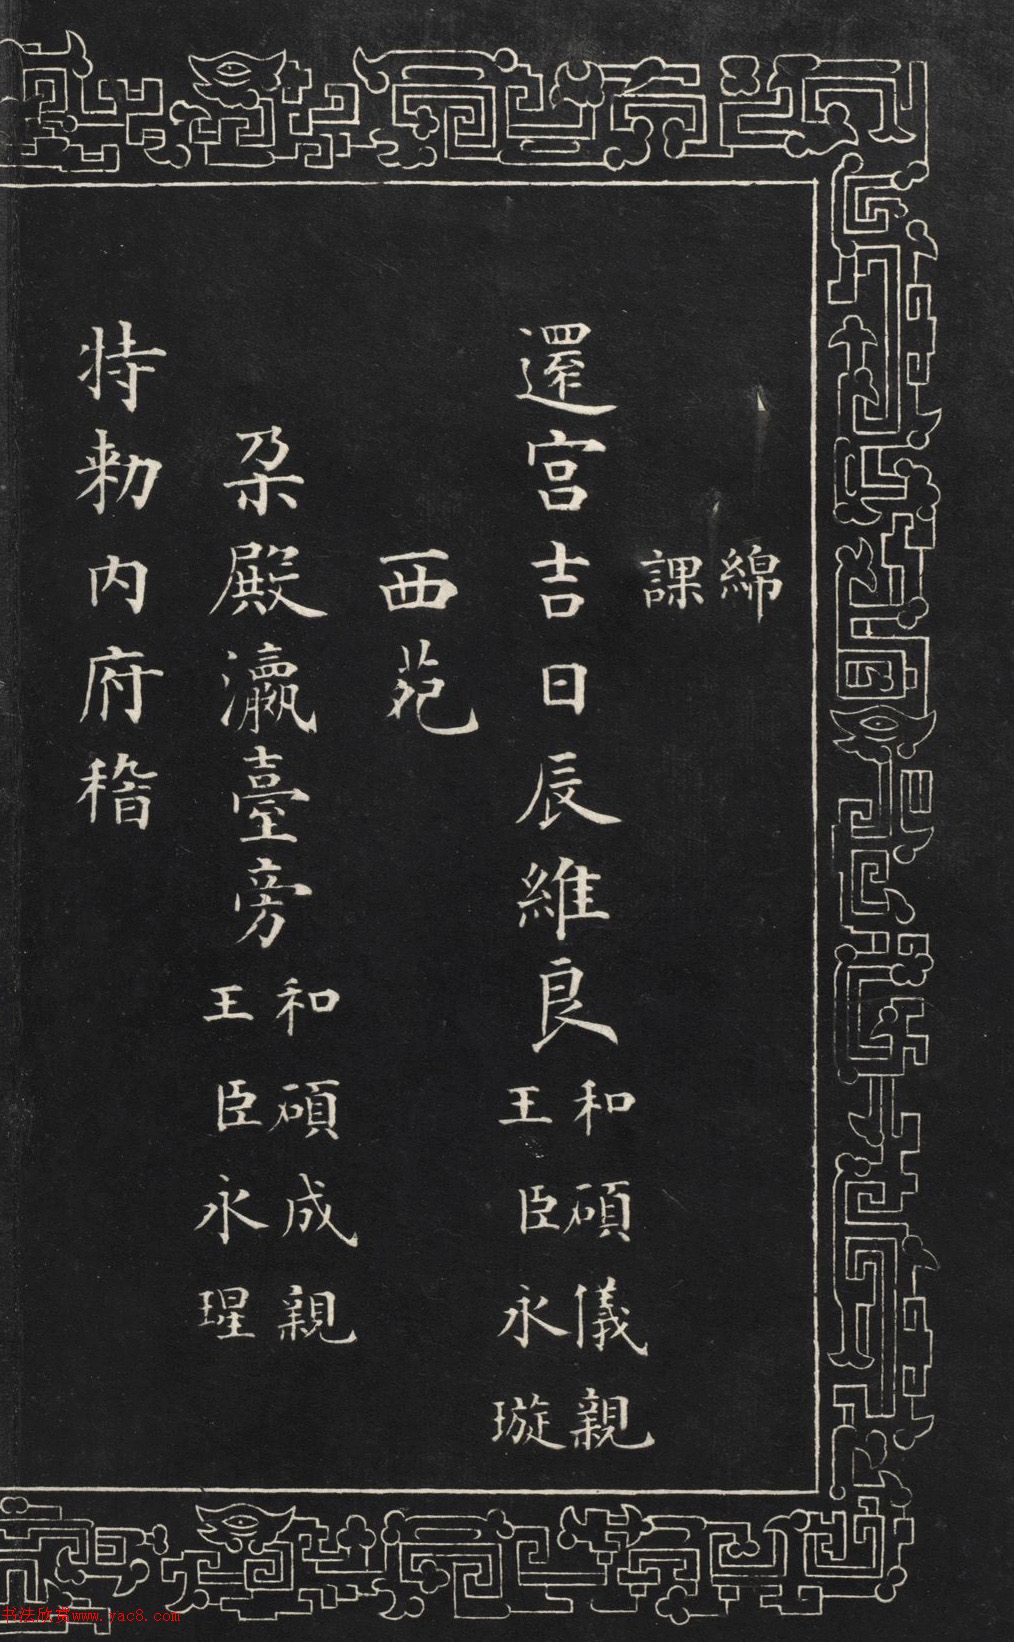 綿
課
還宮吉日辰維良
和碩儀親
王臣永璇
西苑
朶殿瀛臺旁
和碩成親
王臣永瑆
特勅内府稽
书法欣赏www.yac8.com